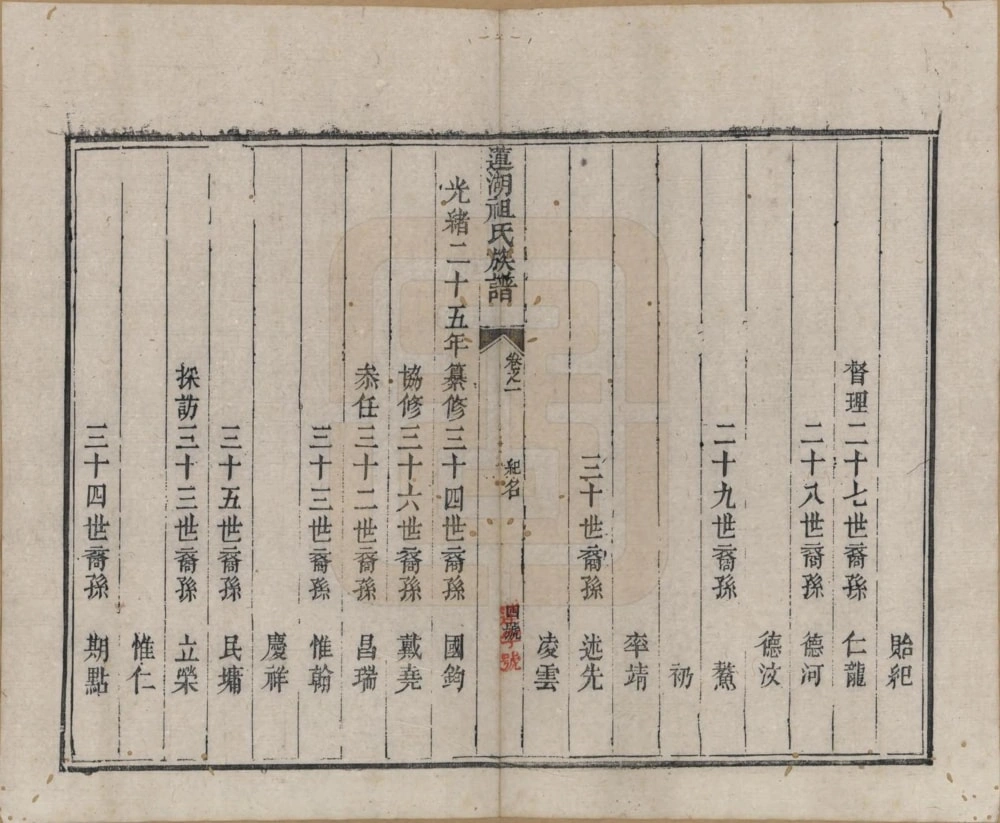 貽紀
督理二十七世裔孫 仁龍
二十八世裔孫 德河
德汶
二十九世裔孫 鰲
礽
率靖
三十世裔孫 述先
凌雲
蓮湖祖氏族譜 卷之一 紀名 四號
光緒二十五年纂修三十四世裔孫 國鈞
協修三十六世裔孫 戴堯
叅任三十二世裔孫 昌瑞
三十三世裔孫 惟翰
慶祥
三十五世裔孫 民墉
採訪三十三世裔孫 立榮
惟仁
三十四世裔孫 期點